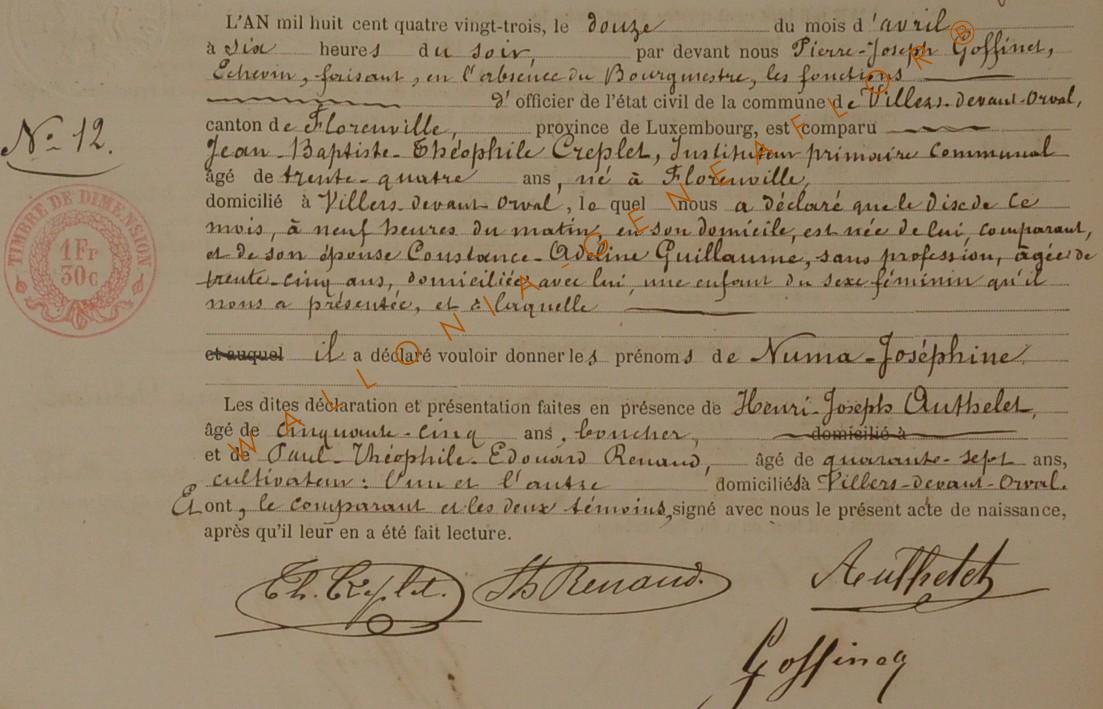 L'AN mil huit cent quatre vingt-trois, le douze du mois d'avril
à six heures du soir, par devant nous Pierre-Joseph Goffinet,
Echevin, faisant, en l'absence du Bourgmestre, les fonctions
d'officier de l'état civil de la commune de Villers-devant-Orval,
N° 12.
canton de Florenville, province de Luxembourg, est comparu
Jean-Baptiste-Théophile Creplet, Instituteur primaire communal
âgé de trente-quatre ans, né à Florenville,
domicilié à Villers-devant-Orval, le quel nous a déclaré que le dix de ce
mois, à neuf heures du matin, en son domicile, est née de lui, comparant,
et de son épouse Constance-Adeline Guillaume, sans profession, âgée de
trente-cinq ans, domiciliée avec lui, une enfant du sexe féminin qu'il
nous a présentée, et à laquelle
TIMBRE DE DIMENSION
1 Fr
30c
et auquel il a déclaré vouloir donner les prénoms de Numa-Joséphine.
Les dites déclaration et présentation faites en présence de Henri-Joseph Authelet,
âgé de cinquante-cinq ans, boucher, domicilié à
et de Paul-Théophile-Edouard Renaud, âgé de quarante-sept ans,
cultivateur : l'un et l'autre domiciliés à Villers-devant-Orval.
Et ont, le comparant et les deux témoins, signé avec nous le présent acte de naissance,
après qu'il leur en a été fait lecture.
Th. Creplet. Th Renaud. Authelet
WALLONIA-GENEAFLORB